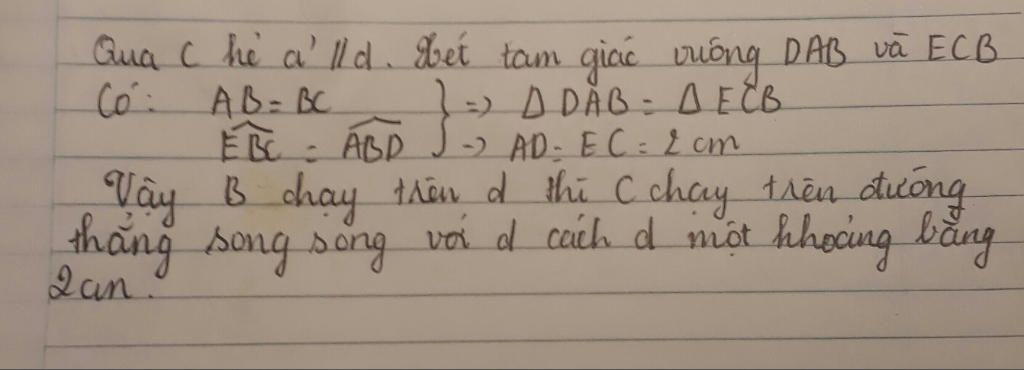 Qua C kẻ a' // d. Xét tam giác vuông DAB và ECB
Có: AB = BC } => Δ DAB = Δ ECB
EBC = ABD } -> AD = EC = 2 cm
Vậy B chạy trên d thì C chạy trên đường
thẳng song song với d cách d một khoảng bằng
2cm.